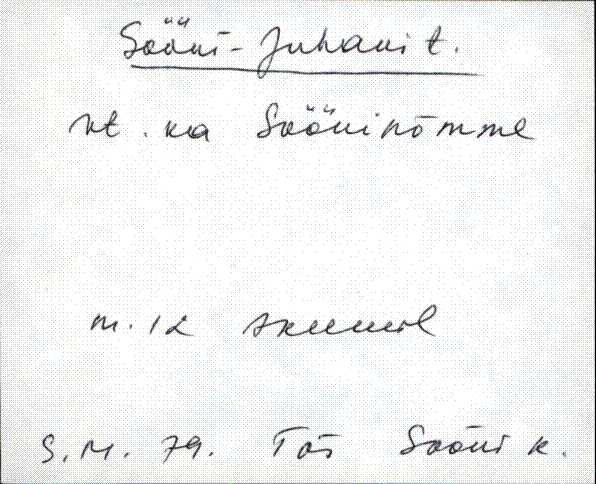 Sööni-Juhani t.
vt. ka Söönipõmme
m. 12 skeemil
S.M. 79. Tõs Sööni k.